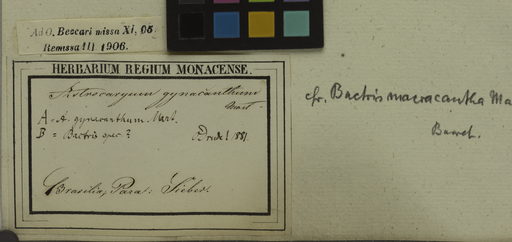 Ad O. Beccari missa XI, 05.
Remissa III 1906.
HERBARIUM REGIUM MONACENSE.
Astrocaryum gynacanthum
Mart.
A = A. gynacanthum Mart.
B = Bactris spec?
Drude! 1881.
Brasilia, Para: Sieber.
cfr. Bactris macracantha Ma
Barret.